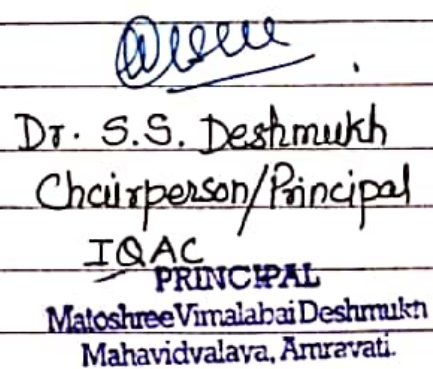 Dr. S.S. Deshmukh
Chairperson/Principal
IQAC
PRINCIPAL
Matoshree Vimalabai Deshmukh
Mahavidyalaya, Amravati.